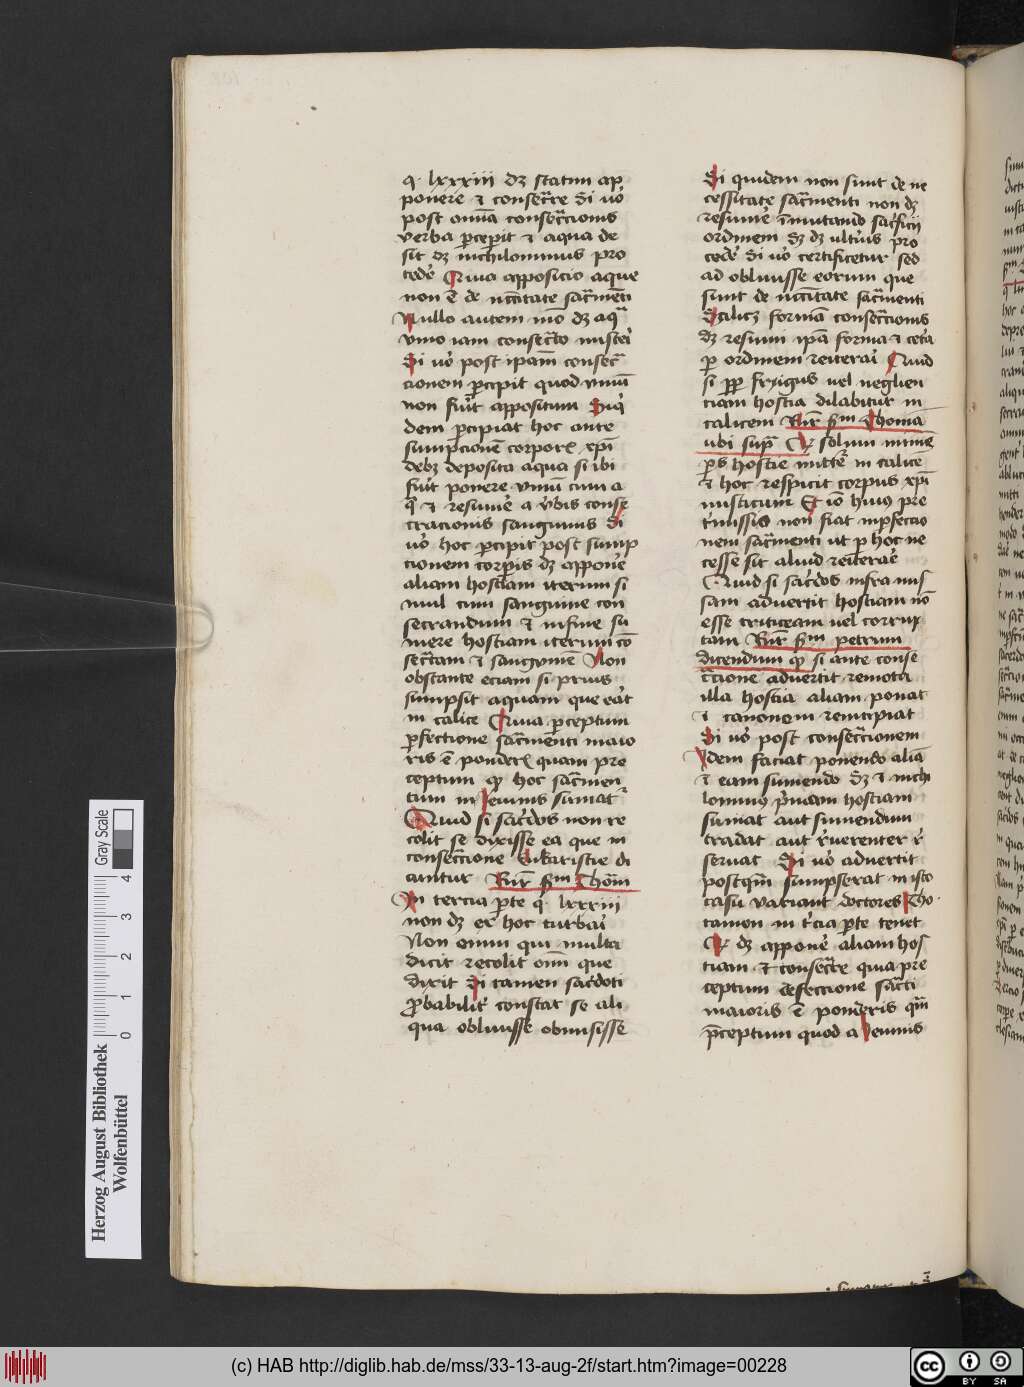 q. lxxxiii dꝫ statim ap
ponere ⁊ consecr̃re Si vo᷑
post om̃ia consecr̃cionis
verba p̱cepit ⁊ aqua de
sit dꝫ nichilominus pro
cede᷑ Quia apposicio aque
non ē de necc̃itate sacr̃mẽti
Nullo autem mo᷑ dꝫ aqᷓ
vino iam consecr̃to misce᷑i
Si vo᷑ post ipam̃ consecr̃
cionem p̱cipit quod vinũ
non fu᷑it appositum Siqͥ
dem p̱cipiat hoc ante
sumpcionẽ corporꝭ xp̃i
debꝫ deposita aqua si ibi
fu᷑it ponere vinũ cum a
qᷓ ⁊ resume᷑ a v᷑bis conse
cracionis sanguinis Si
vo᷑ hoc p̱cipit post sump
cionem corp̱is dꝫ appone᷑
aliam hostiam iterum si
mul cum sanguine con
secrandum ⁊ in fine su
mere hostiam iterum cõ
secr̃tam ⁊ sanguine Non
obstante eciam si prius
sumpsit aquam que erat
in calice Quia p̱ceptum
p̱fectione sacr̃mẽti maio
ris ē ponderꝭ quam pre
ceptum qꝫ hoc sacr̃men
tum in Ieiunis sumat᷑
Quid si sac᷑dos non re
colit se dixisse ea que in
consecr̃cione Eukaristie di
cuntur Rn̄r̃ sm̃ Thom̃
In tercia p̱te qͤ lxxxiii
non dꝫ ex hoc turbari
Non enim qui multa
dicit recolit om̃ que
dixit Si tamen sac᷑doti
ꝓbabilit᷑ constat se ali
qua oblivisse obmisisse
Si quidem non sunt de ne
cessitate sacr̃menti non dꝫ
resume᷑ ĩmutando sac᷑ficii
ordinem Sꝫ dꝫ ulti᷑us pro
cede᷑ Si vo᷑ certificetur sed
ad oblivisse eorum que
sunt de necc̃itate sacr̃menti
Scilicꝫ formã consecr̃cionis
dꝫ resumi ip̃a forma ⁊ cet᷑a
p̱ ordinem reiterari Quid
si ꝓp̱ frigus vel neglien
ciam hostia dilabitur in
calicem Rn̄r̃ sm̃ Thomã
ubi supᷓ qꝫ solum inmine᷑
p̱s hostie mitte᷑ in calicẽ
⁊ hoc respicit corpus xp̃i
misticum Et io᷑ huiꝰ pre
t᷑missis non fiat inp̱fectio
nem sacr̃menti ut p̱ hoc ne
cesse sit aliud reiterare
Quid si sac᷑dos infra mis
sam advertit hostiam nõ
esse triticeam vel corrup
tam Rn̄r̃ sm̃ petrum
dicendum qꝫ si ante conse
cr̃cione advertit remota
illa hostia aliam ponat
⁊ canonem reincipiat
Si vo᷑ post consecr̃cionem
Idem faciat ponendo aliã
⁊ eam sumendo Sꝫ ⁊ nichi
lominꝰ primam hostiam
sumat aut sumendum
tradat aut r᷑verenter r᷑
servat Si vo᷑ advertit
postqm̃ sumpserat in isto
casu variant doctores Tho
tamen in t᷑cia p̱te tenet
Qꝫ dꝫ appone᷑ aliam hos
tiam ⁊ consecr̃re quia pre
ceptum defectione sacr̃ti
maioris ē ponderis qm̃
p̃ceptum quod a Ieiunis
Herzog August Bibliothek
Wolfenbüttel
0 1 2 3 4 Gray Scale
(c) HAB http://diglib.hab.de/mss/33-13-aug-2f/start.htm?image=00228
cc BY SA